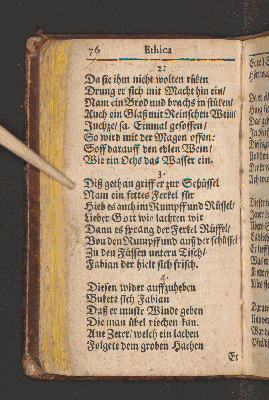 76 Ethica
2.
Da sie ihm nicht wolten rüken
Drung er sich mit Macht hin ein/
Nam ein Brod und brachs in stüken/
Auch ein Glaß mit Reinschen Wein/
Juchze/ sa. Einmal gesoffen/
So wird mit der Magen offen:
Soff darauff den edlen Wein/
Wie ein Ochs das Wasser ein.
3.
Diß geth an griff er zur Schüssel
Nam ein fettes Ferkel für
Hieb es auch im Rumpff und Rüssel/
Lieber Gott wie lachten wir
Dann es sprang der Ferkel Rüffel/
Von den Rumpff und auß der schüssel
Zu den Füssen unterm Tisch/
Fabian der hielt sich frisch.
4.
Diesen wider auffzuheben
Bukete sich Fabian
Daß er muste Winde geben
Die man übel riechen kan.
Aue Zeter/ welch ein lachen
Folgete dem groben Hachen
Et